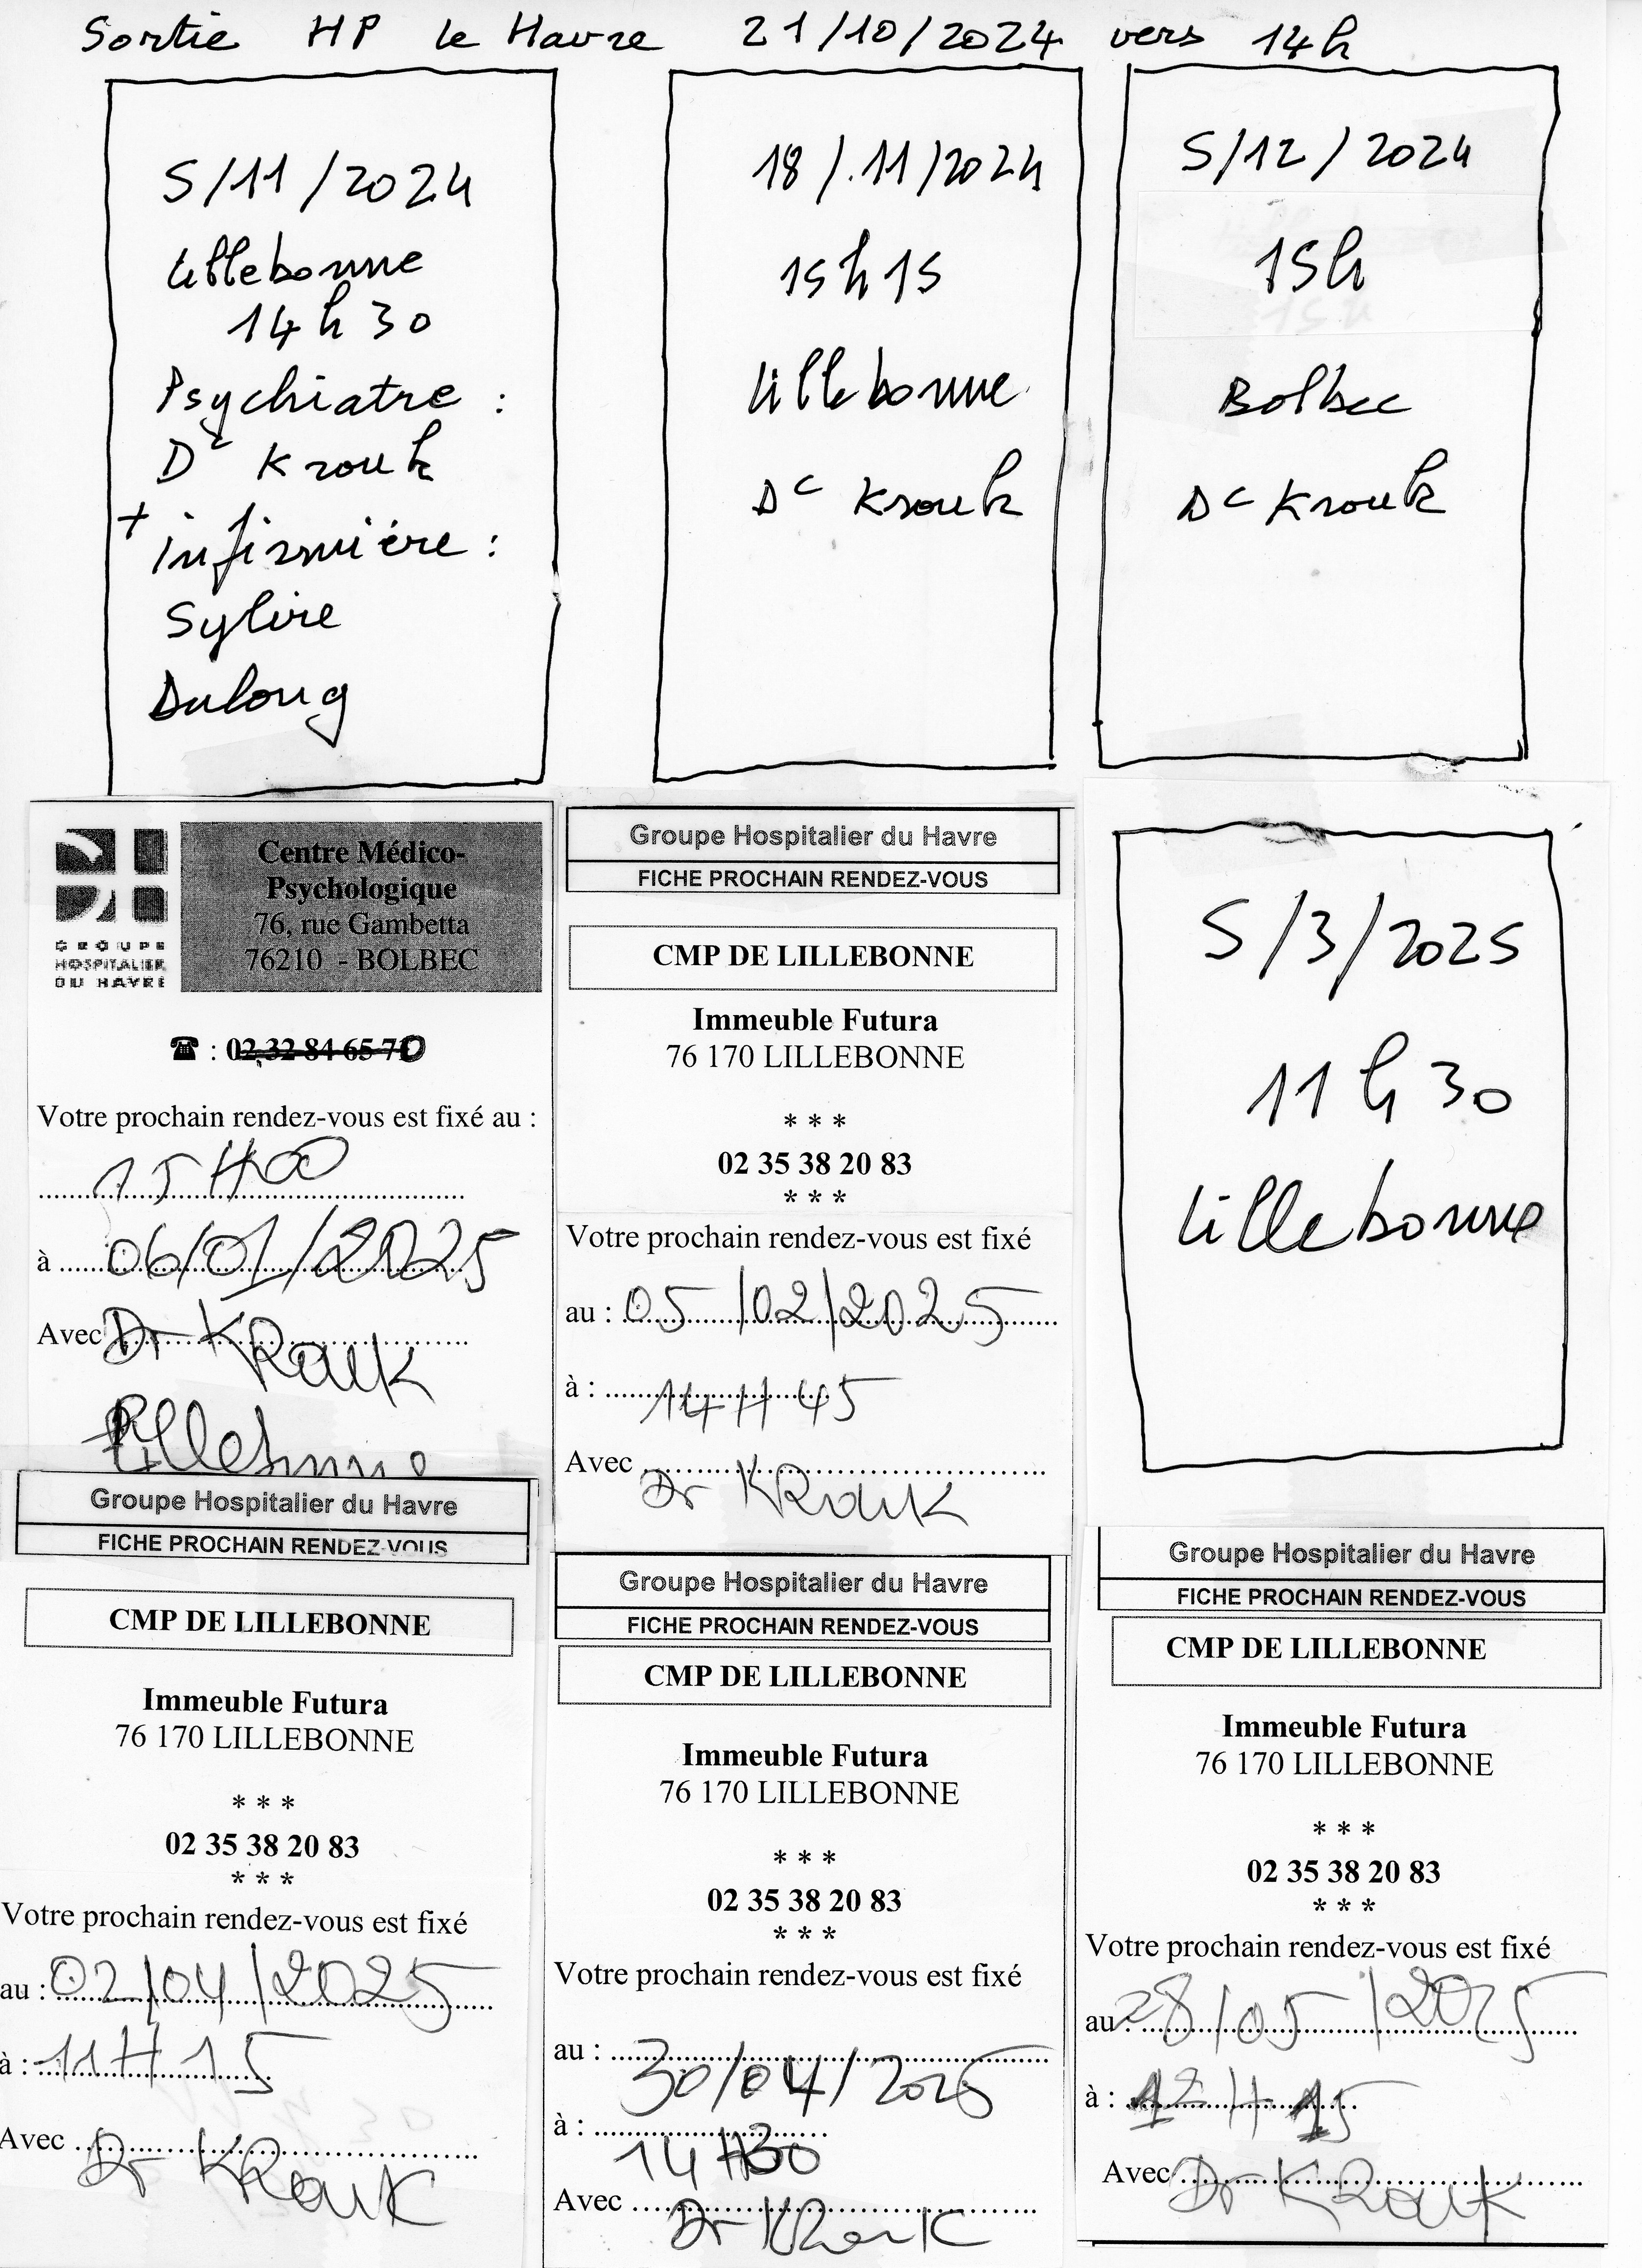 Sortie HP le Havre 21/10/2024 vers 14h
5/11/2024
Lillebonne
14h30
Psychiatre :
Dr Krouk
+ infirmière :
Sylvie
Dulong
18/.11/2024
15h15
Lillebonne
Dr Krouk
5/12/2024
15h
Bolbec
Dr Krouk
Centre Médico-
Psychologique
76, rue Gambetta
76210 - BOLBEC
GROUPE
HOSPITALIER
DU HAVRE
☎ : 02 32 84 65 70
Votre prochain rendez-vous est fixé au :
15H00
à 06/01/2025
Avec Dr KRouK
Lillebonne
Groupe Hospitalier du Havre
FICHE PROCHAIN RENDEZ-VOUS
CMP DE LILLEBONNE
Immeuble Futura
76 170 LILLEBONNE
* * *
02 35 38 20 83
* * *
Votre prochain rendez-vous est fixé
au : 05/02/2025
à : 14H45
Avec
Dr KRouK
5/3/2025
11h30
Lillebonne
Groupe Hospitalier du Havre
FICHE PROCHAIN RENDEZ-VOUS
CMP DE LILLEBONNE
Immeuble Futura
76 170 LILLEBONNE
* * *
02 35 38 20 83
* * *
Votre prochain rendez-vous est fixé
au : 02/04/2025
à : 11H15
Avec
Dr KRouK
Groupe Hospitalier du Havre
FICHE PROCHAIN RENDEZ-VOUS
CMP DE LILLEBONNE
Immeuble Futura
76 170 LILLEBONNE
* * *
02 35 38 20 83
* * *
Votre prochain rendez-vous est fixé
au :
30/04/2025
à :
14H30
Avec
Dr KRouK
Groupe Hospitalier du Havre
FICHE PROCHAIN RENDEZ-VOUS
CMP DE LILLEBONNE
Immeuble Futura
76 170 LILLEBONNE
* * *
02 35 38 20 83
* * *
Votre prochain rendez-vous est fixé
au : 28/05/2025
à : 12H15
Avec Dr KRouK